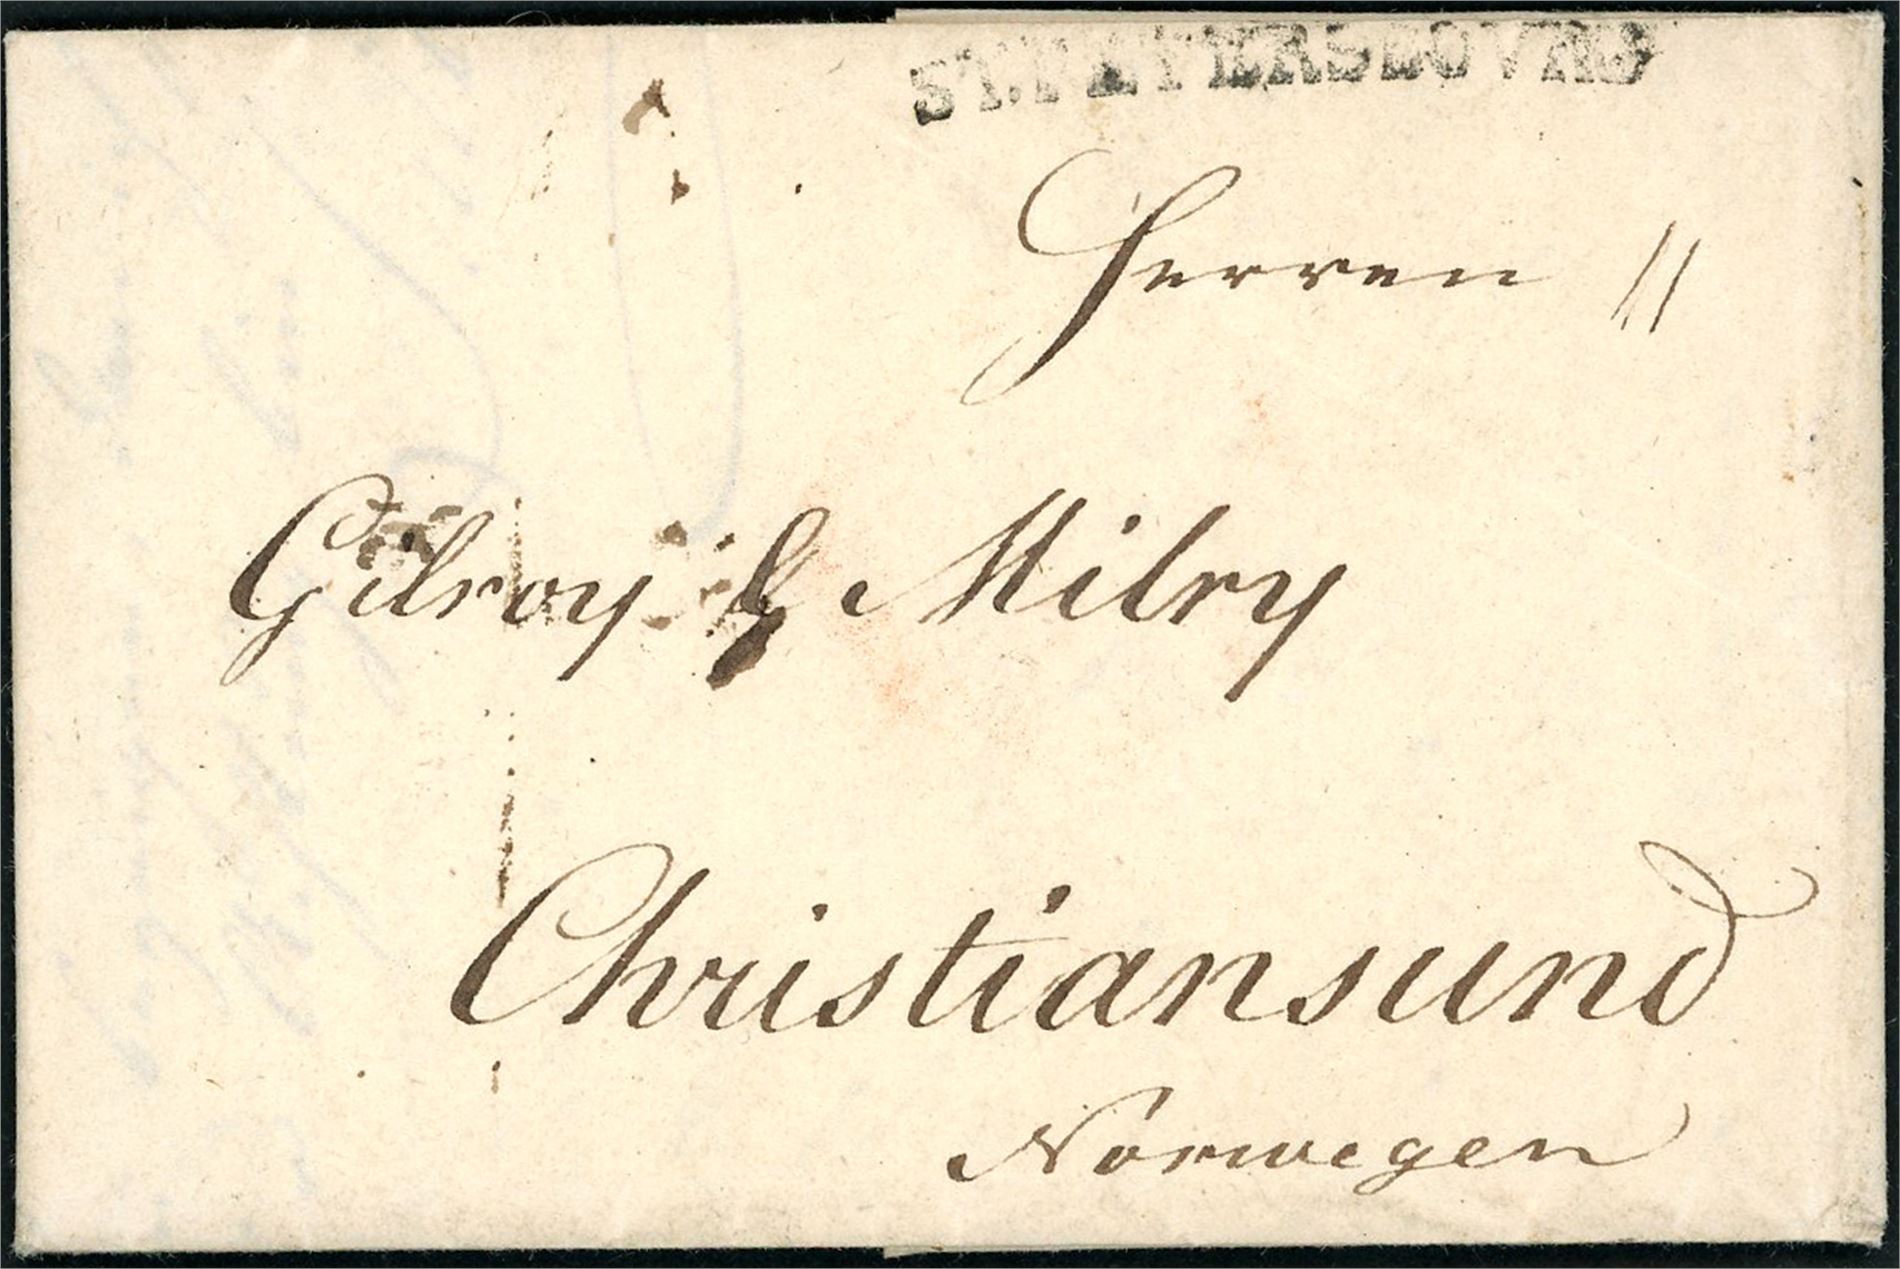 ST.PETERSBOVRG
Herren
Gilroy & Milry
Christiansund
Norwegen